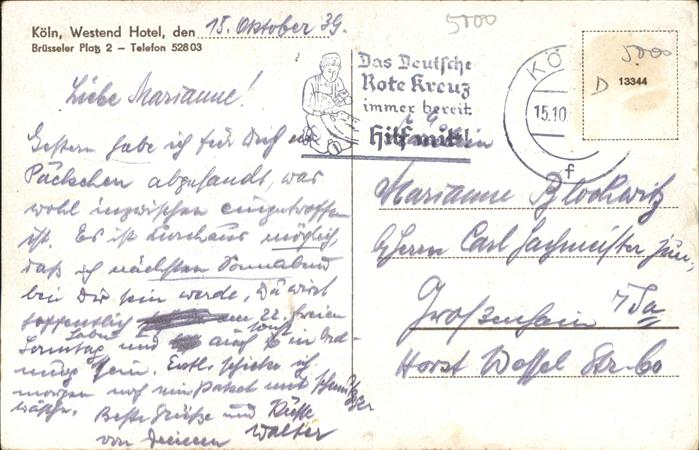 Köln, Westend Hotel, den 15. Oktober 39.
Brüsseler Platz 2 – Telefon 52803
Liebe Marianne!
Gestern habe ich für Dich ein
Päckchen abgesandt, was
wohl inzwischen eingetroffen
ist. Es ist durchaus möglich,
daß ich nächsten Sonnabend
bei Dir sein werde. Du wirst
hoffentlich am 22. freien
Sonntag haben und auch sonst in Ord-
nung sein. Evtl. schicke ich
morgen noch ein Paket mit schmutziger
Wäsche. Beste Grüße und Küsse
von Deinem Walter
5000
Das Deutsche
Rote Kreuz
immer bereit.
Hilf mit!
KÖ
15.10
f
5000
D
13344
Fräulein
Marianne Blockwitz
b/Herrn Carl Sachmeister jun.
Großenhain i/Sa
Horst Wessel Str. 60